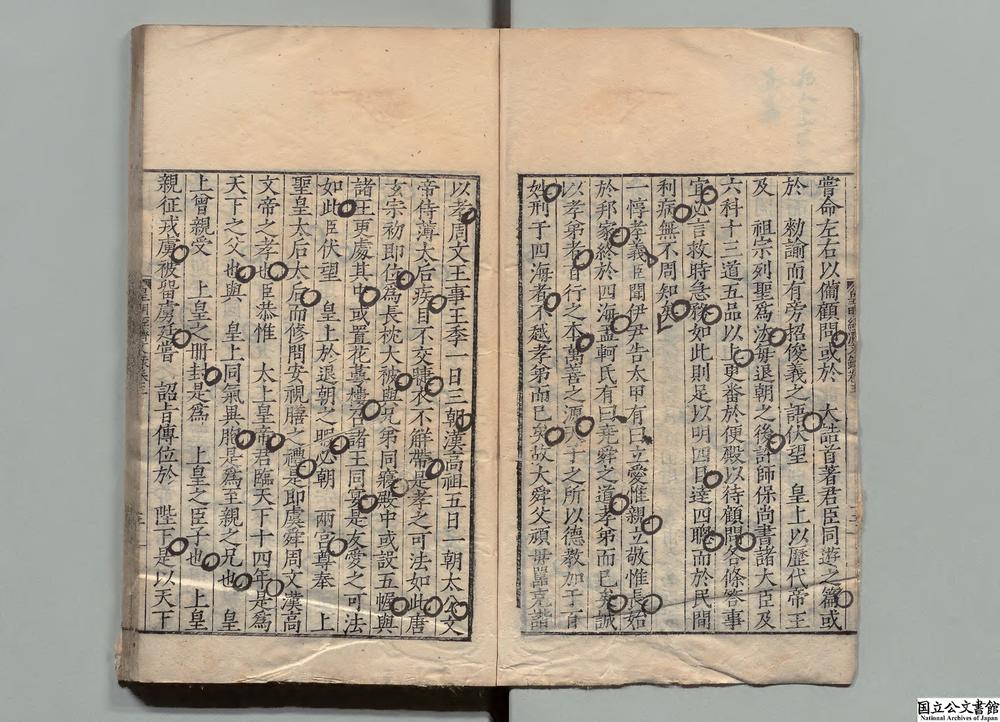 嘗命左右以備顧問或於　大誥首著君臣同遊之篇或
於　勑諭而有旁招俊義之語伏望　皇上以歷代帝王
及　祖宗列聖爲法每退朝之後許師保尚書諸大臣及
六科十三道五品以上更番於便殿以待顧問各條荅事
宜必言救時急務如此則足以明四目達四聰而於民間
利病無不周知矣
一惇孝義臣聞伊尹告太甲有曰立愛惟親立敬惟長始
於邦家終於四海孟軻氏有曰堯舜之道孝弟而已矣誠
以孝弟者百行之本萬善之源天子之所以德教加于百
姓刑于四海者不越孝弟而已矣故大舜父頑母嚚克諧
以孝周文王事王季一日三朝漢高祖五日一朝太公文
帝侍薄太后疾目不交睫衣不解帶是孝之可法如此唐
玄宗初卽位爲長枕大被與兄弟同寢殿中或設五幄與
諸王更處其中或置花萼樓召諸王同宴是友愛之可法
如此臣伏望　皇上於退朝之暇必朝　兩宮尊奉　上
聖皇太后太后而修問安視膳之禮是卽虞舜周文漢高
文帝之孝也臣恭惟　太上皇帝君臨天下十四年是爲
天下之父也與　皇上同氣異胞是爲至親之兄也　皇
上曾親受　上皇之冊封是爲　上皇之臣子也　上皇
親征戎虜被留虜廷嘗　詔旨傳位於　陛下是以天下
国立公文書館
National Archives of Japan